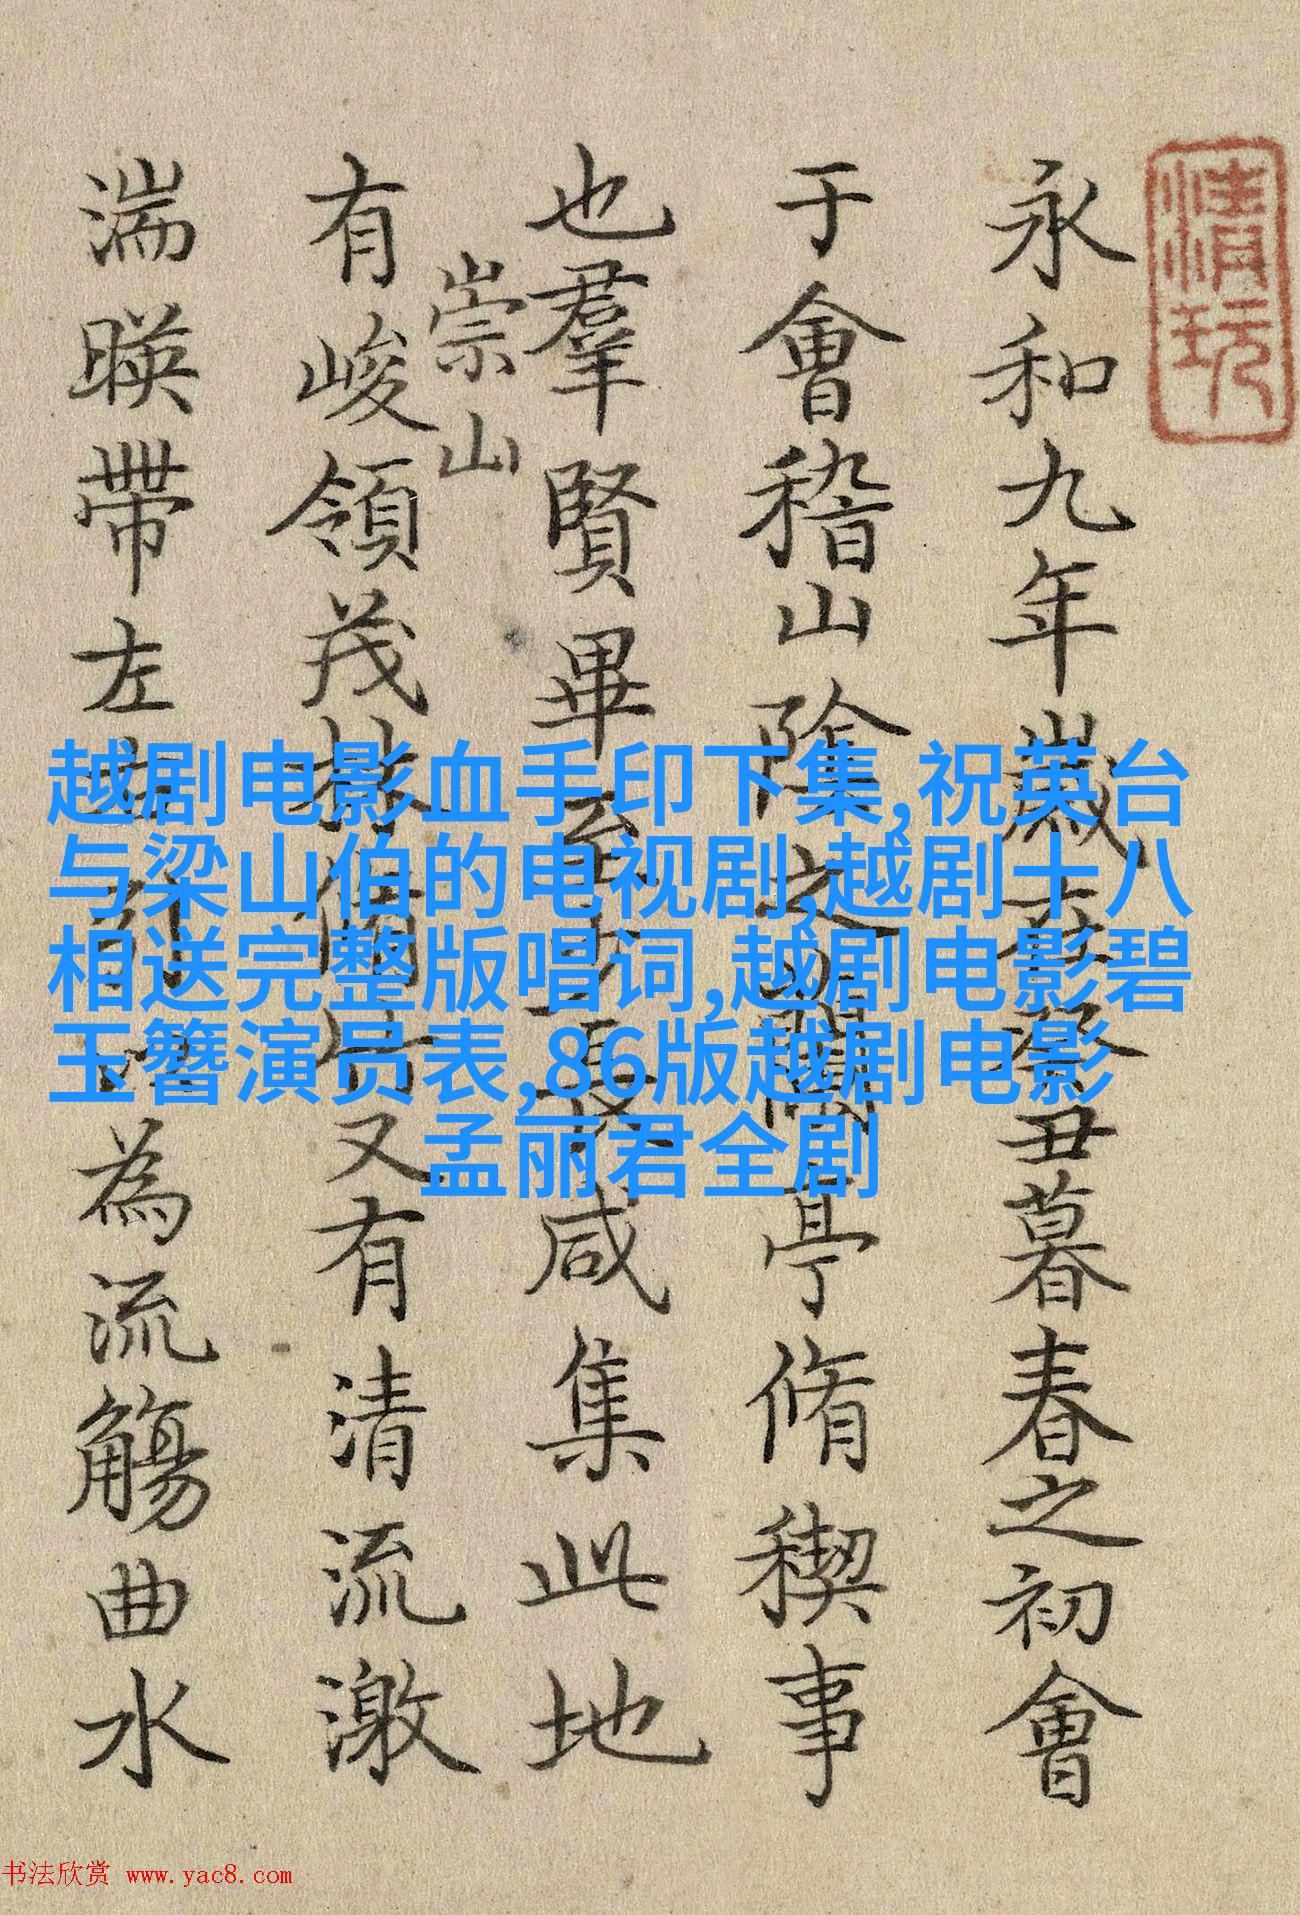 清玩
永和九年歲在癸丑暮春之初會
于會稽山陰之蘭亭脩稧事
也羣賢畢至少長咸集此地
崇山
有峻領茂林脩竹又有清流激
湍暎帶左右引以為流觴曲水
越剧电影血手印下集,祝英台
与梁山伯的电视剧,越剧十八
相送完整版唱词,越剧电影碧
玉簪演员表,86版越剧电影
孟丽君全剧
书法欣赏 www.yac8.com